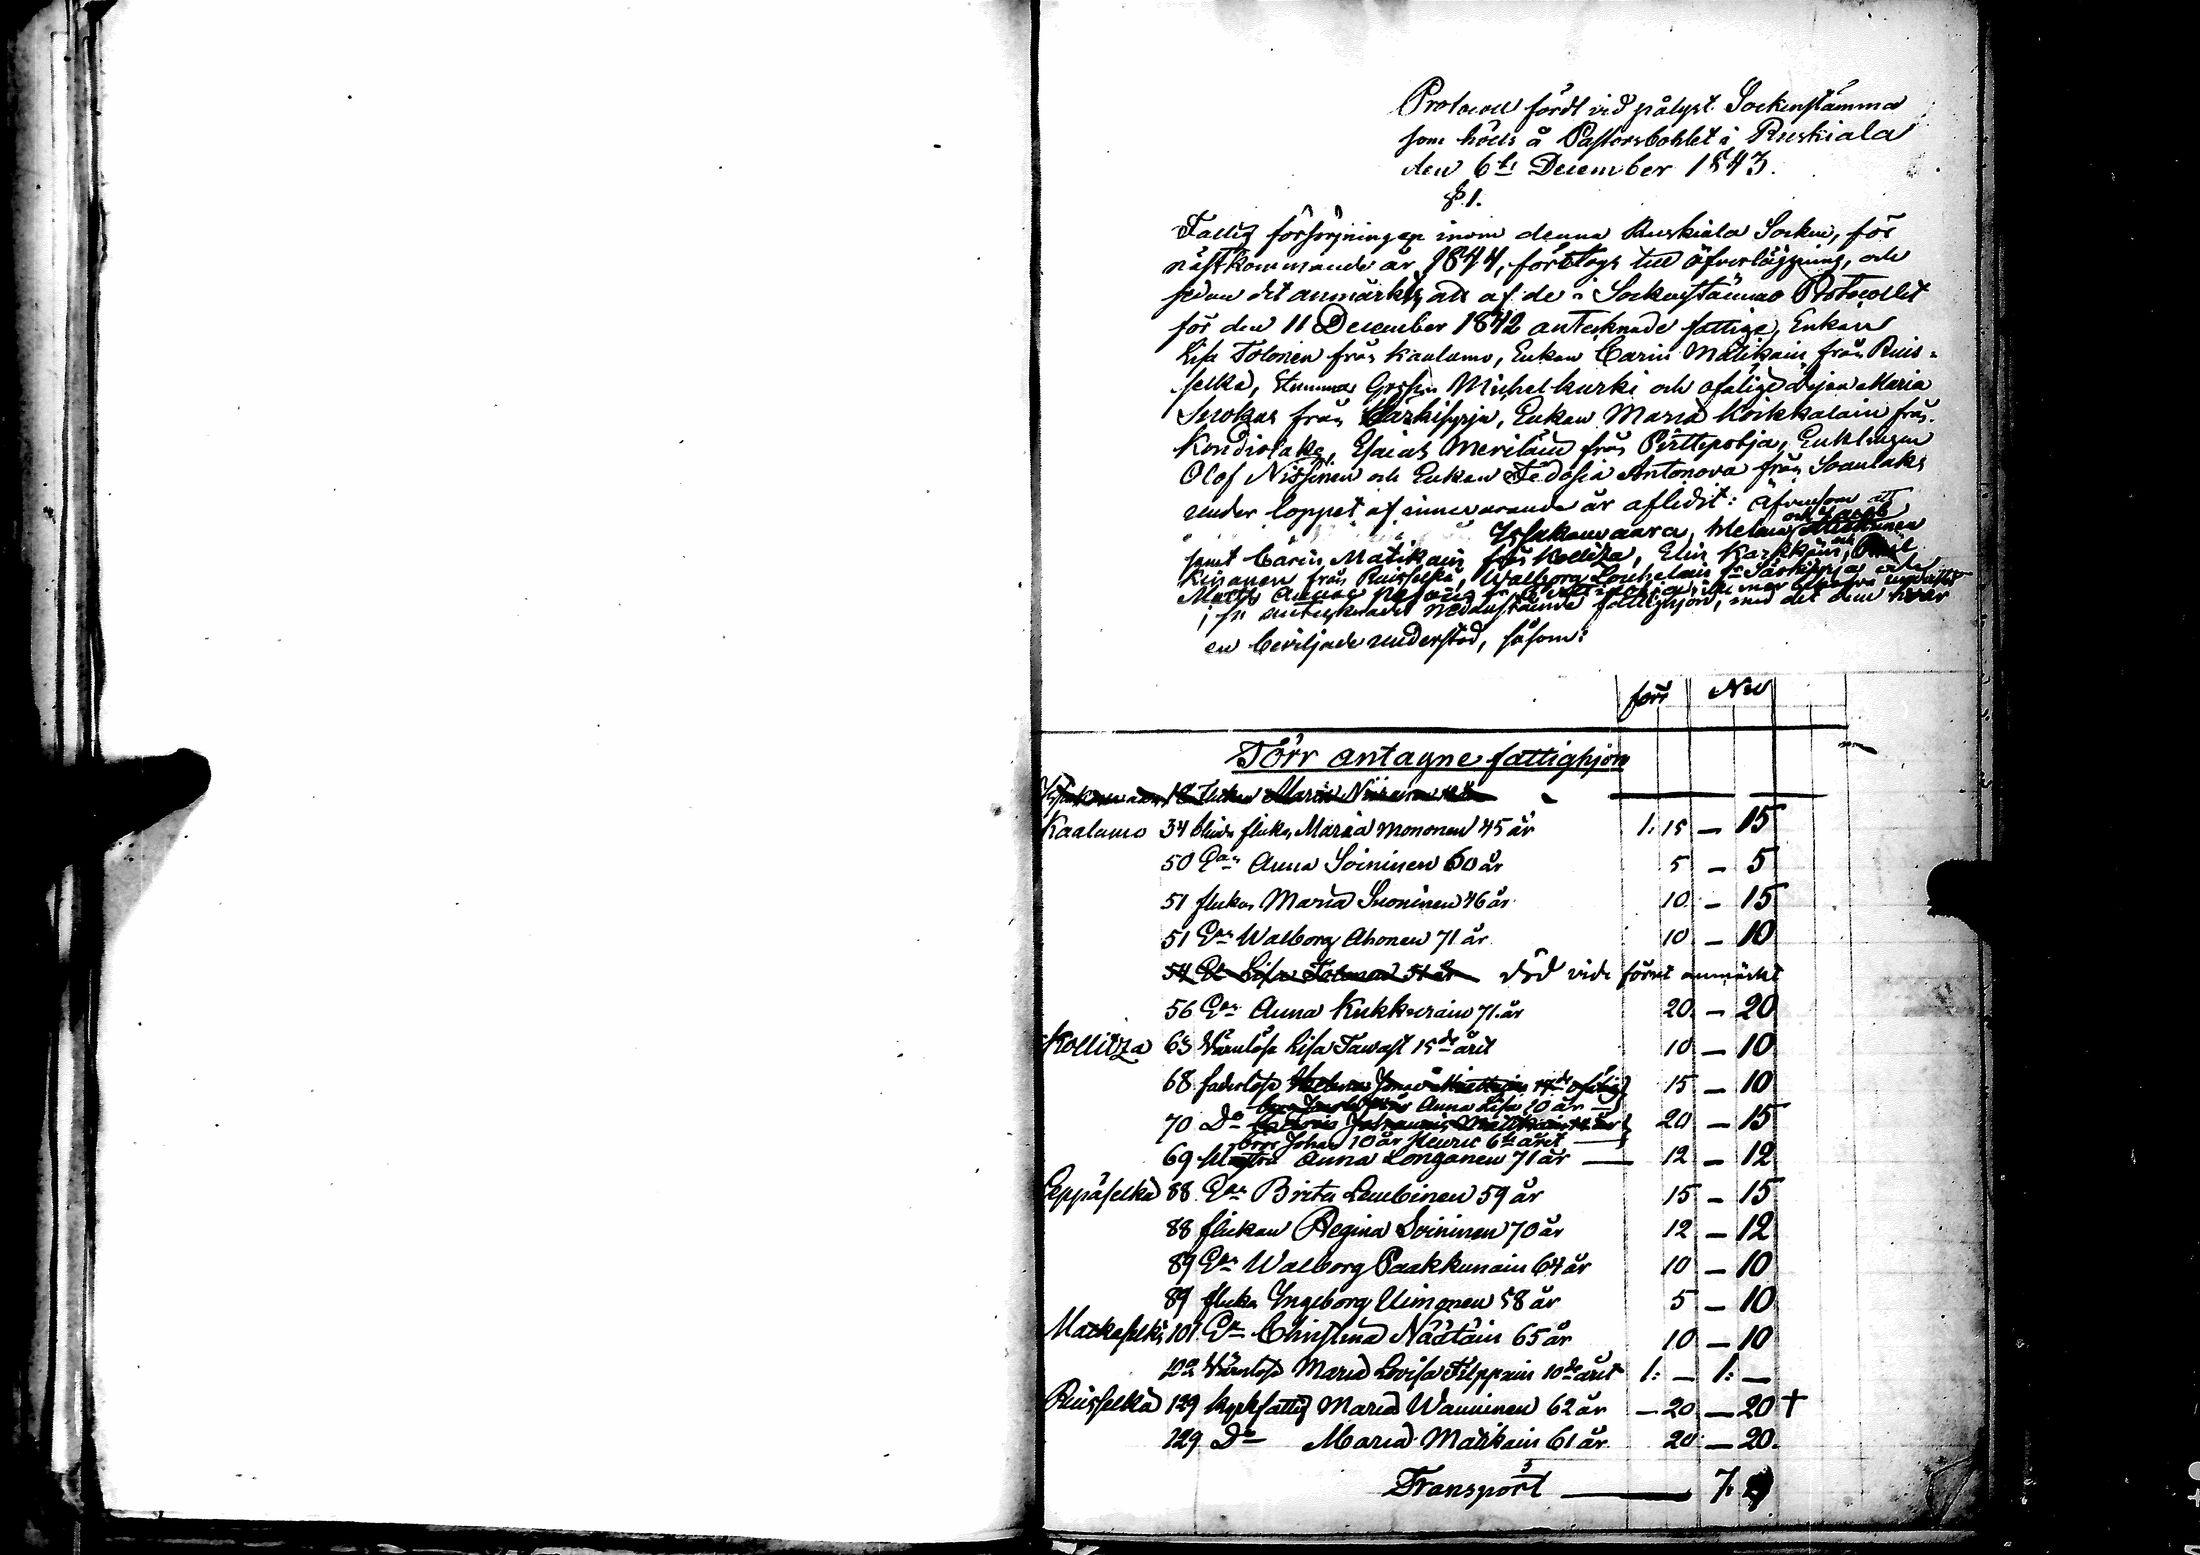 Protocoll fördt vid pålyst Sockenstämma
som hölls å Pastorsbohlet i Ruskiala
den 6te December 1843.
§ 1.
Fattig försörjningen inom denna Ruskiala Socken, för
nästkommande år 1844, företogs till öfverläggning, och
sedan det anmärkts, att af de i Sockenstämmo Protocollet
för den 11 December 1842 antecknade fattige, Enkan
Lisa Tolonen från Kaalamo, Enkan Carin Matikain från Ruis-
selkä, Stumma Michel Kurki och ofärige Maria
från Särkisyrja, Enkan Maria Koikkalain från
Kondiolaks, Esaias Meriläin från Pirttipohja, Enklingen
Olof Nissinen och Enkan Fedosia Antonova från Soanlaks
under loppet af innevarande år aflidit: äfvensom att
och Jacob
samt Carin Matikain från Kollitza, Elin Karkkain, och
Kinanen från Ruisselkä, Walborg Louhelain fr Särkisyrja och
antecknades nedanstående fattighjon, med det dem hvar
en beviljade understöd, såsom:
förr Nu
Förr antagne fattighjon
Kaalamo 34 blinda flickan Maria Mononen 45 år 1: 15 — 15
50 Enn Anna Soininen 60 år 5 — 5
51 flickan Maria Suoninen 46 år 10 — 15
51 Enn Walborg Ahonen 71 år 10 — 10
54 En Lisa Tolonen 51 år död vide förut anmärkt
56 Enn Anna Kukkurain 71 år 20 — 20
Kollitza 63 Värnlösa Lisa Tawast 15de året 10 — 10
68 faderlösa 15 — 10
Anna Lisa 10 år
70 Do 20 — 15
bror Johan 10 år Henric 6te året
69 Anna Longanen 71 år — 12 — 12
Leppäselkä 88 Enn Brita Lembinen 59 år 15 — 15
88 flickan Regina Soininen 70 år 12 — 12
89 Enn Walborg Paakkunain 64 år 10 — 10
89 flicka Ingeborg Uimonen 58 år 5 — 10
Matkaselkä 101 En Christina Näätäin 65 år 10 — 10
102 Värnlösa Maria Lovisa Filppain 10de året 1: — 1: —
Ruisselkä 129 kyrkfattig Maria Wanninen 62 år — 20 — 20 +
129 Do Maria Matikain 61 år 20 — 20
Transport — 7.